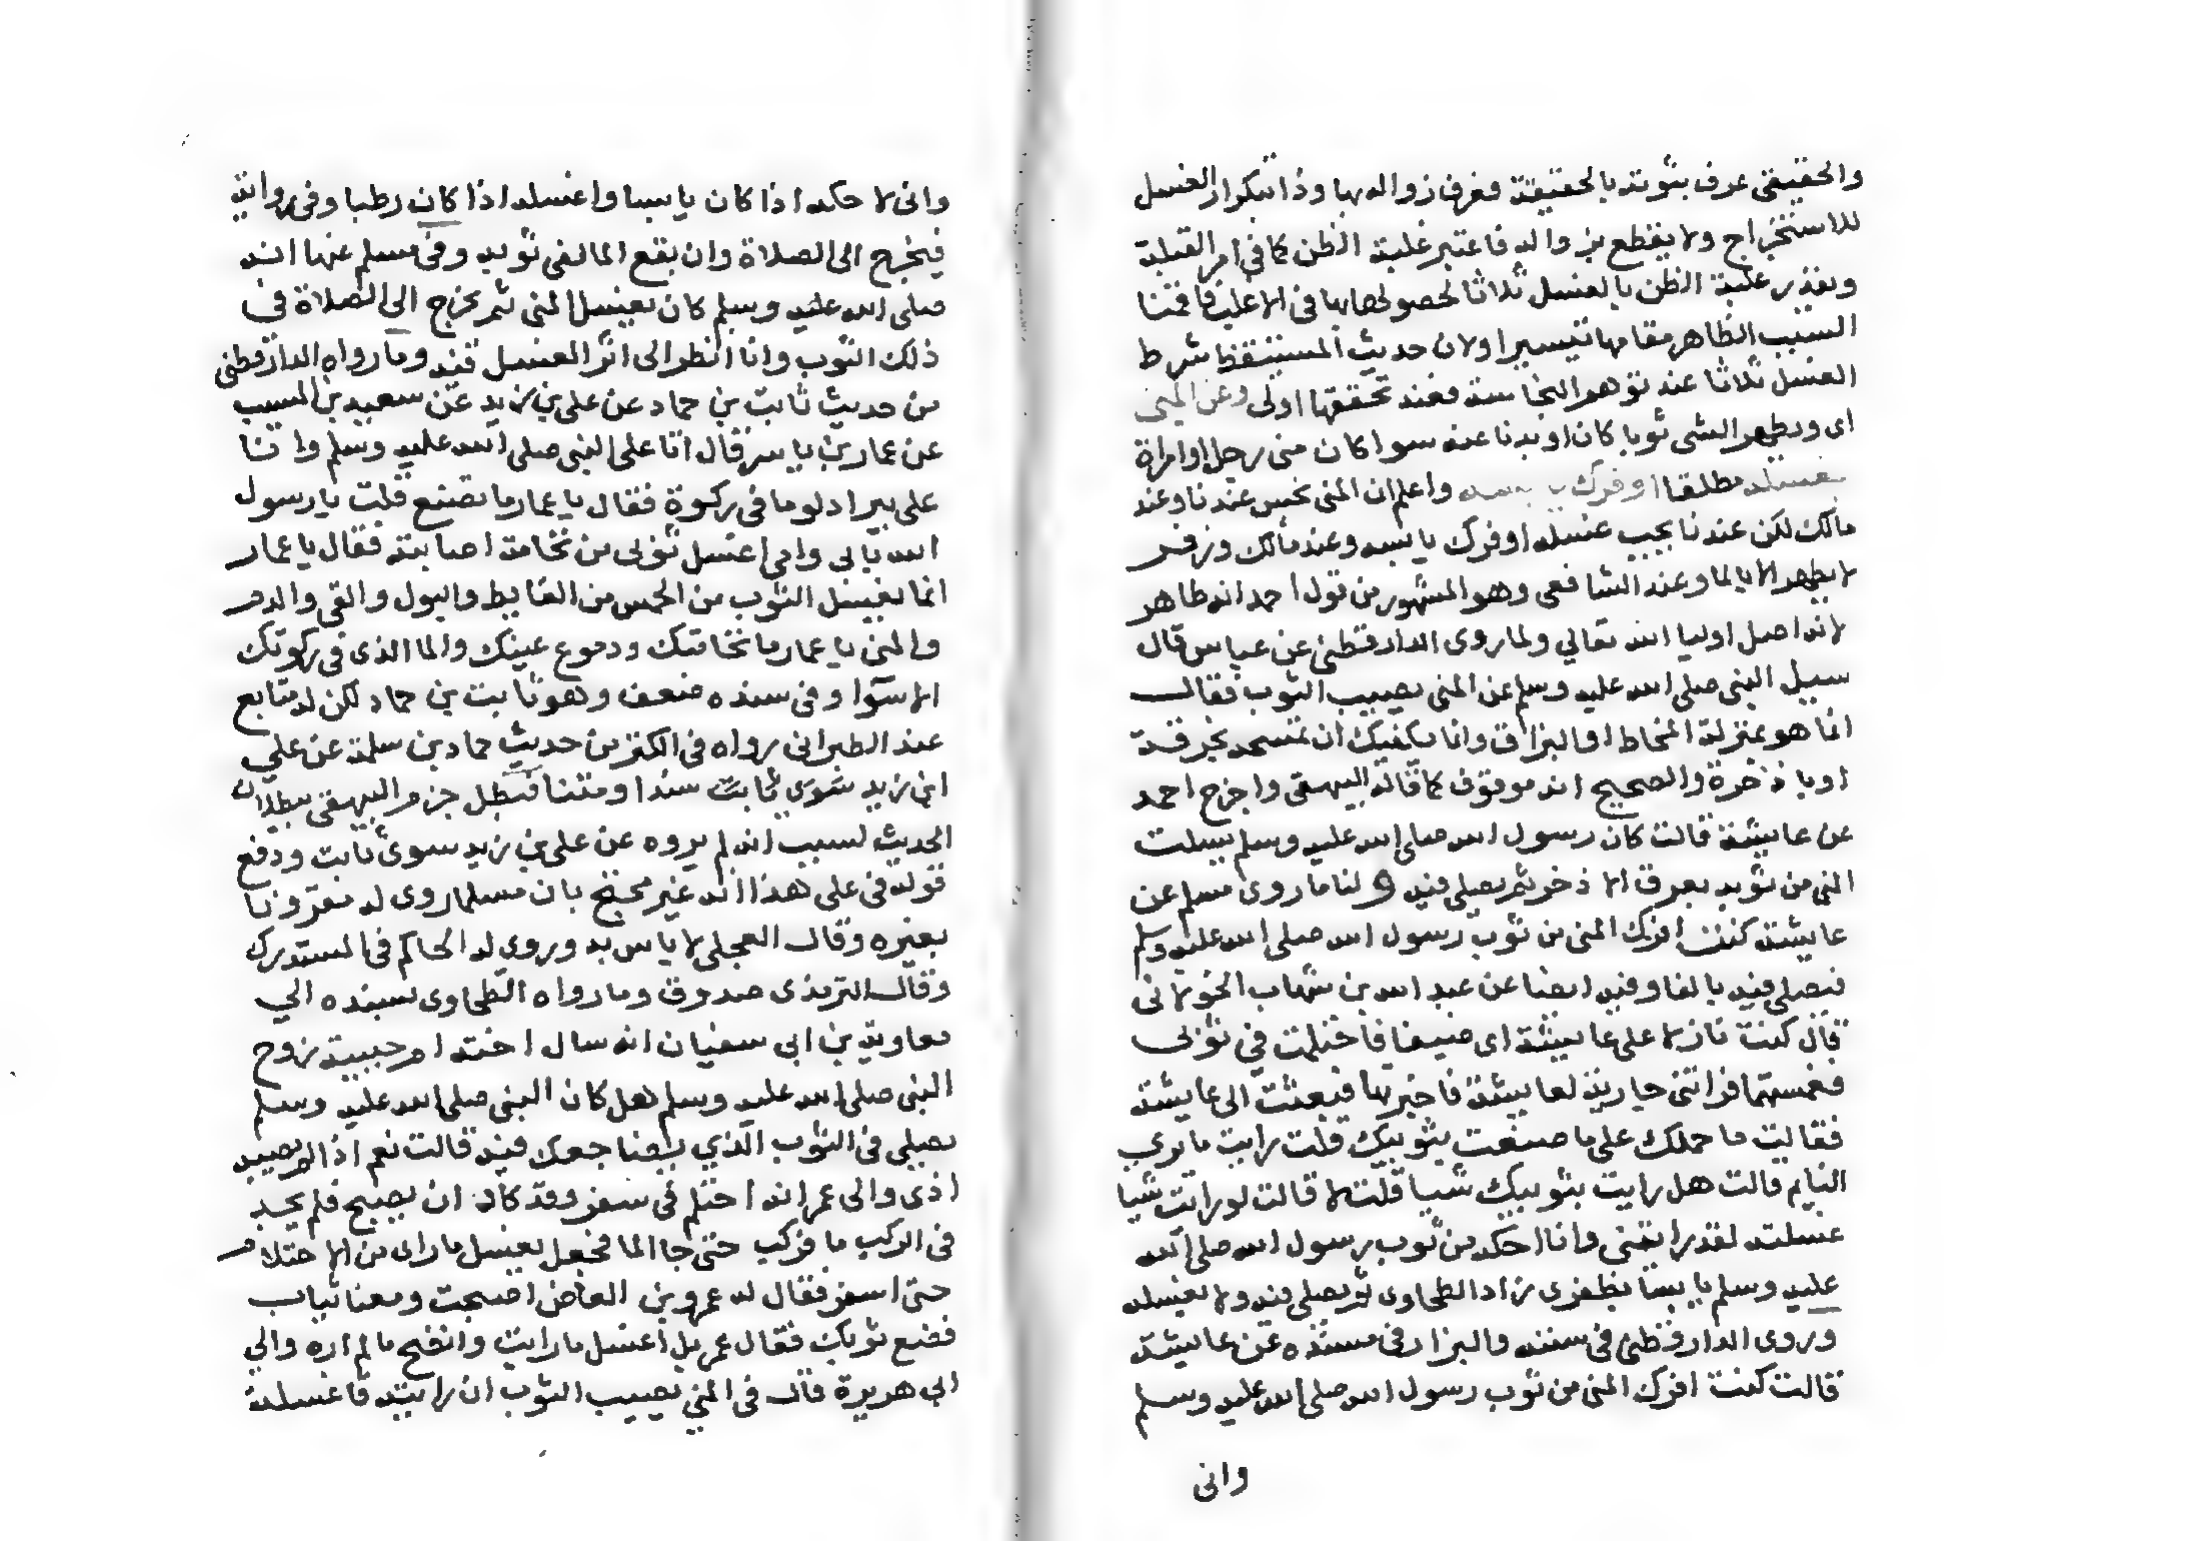 والحقيقى عرف بثوبته بالحقيقة فعرف زواله بها وذا بتكرار الغسل
للاستخراج ولا يقطع بزواله فاعتبر غلبة الظن كما في امر القبلة
ويقدر غلبة الظن بالغسل ثلاثا لحصولها بها فى الاغلب فاقمنا
السبب الظاهر مقامها تيسيرا ولان حديث المستيقظ شرط
الغسل ثلاثا عند توهم النجاسة فعند تحققها اولى وعن المنى
اى ويطهر الشى ثوبا كان او بدنا عنه سوا كان منى رجل او امراة
بغسله مطلقا او فرك يابسه واعلم ان المنى نجس عندنا وعند
مالك لكن عندنا يجب غسله او فرك يابسه وعند مالك وزفر
لا يطهر الا بالما وعند الشافعى وهو المشهور من قول احمد انه طاهر
لانه اصل اوليا الله تعالي ولما روى الدارقطنى عن عباس قال
سيل النبى صلى الله عليه وسلم عن المنى يصيب الثوب فقال
انما هو بمنزلة المخاط او البزاق وانا يكفيك ان تمسحه بخرقة
او باذخرة والصحيح انه موقوف كما قاله البيهقى واخرج احمد
عن عايشة قالت كان رسول الله صلى الله عليه وسلم يسلت
المنى من ثوبه بعرق الاذخر ثم يصلى فيه ولنا ما روى مسلم عن
عايشة كنت افرك المنى من ثوب رسول الله صلى الله عليه وسلم
فيصلى فيه بالفا وفيه ايضا عن عبد الله بن شهاب الخولانى
قال كنت نازلا على عايشة اى ضيفا فاحتلمت في ثوبى
فغمستهما فراتنى جارية لعايشة فاخبرتها فبعثت الى عايشة
فقالت ما حملك على ما صنعت بثوبيك قلت رايت ما يرى
النايم قالت هل رايت بثوبيك شيا قلت لا قالت لو رايت شيا
غسلته لقد رايتنى وانا احكه من ثوب رسول الله صلى الله
عليه وسلم يابسا بظفرى زاد الطحاوى ثم يصلى فيه ولا يغسله
وروى الدارقطنى فى سننه والبزار فى مسنده عن عايشة
قالت كنت افرك المنى من ثوب رسول الله صلى الله عليه وسلم
وانى
وانى لا حكه اذا كان يابسا واغسله اذا كان رطبا وفى رواية
فيخرج الى الصلاة وان بقع الما لفى ثوبه وفى مسلم عنها انه
صلى الله عليه وسلم كان يغسل المنى ثم يخرج الى الصلاة فى
ذلك الثوب وانا انظر الى اثر الغسل فيه وما رواه الدارقطنى
من حديث ثابت بن حماد عن على بن زيد عن سعيد بن المسيب
عن عمار بن ياسر قال اتا على النبى صلى الله عليه وسلم وانا
على بير ادلو ما فى ركوة فقال يا عمار ما تصنع قلت يا رسول
الله بابى وامى اغسل ثوبى من نخامة اصابته فقال يا عمار
انما يغسل الثوب من الخمس من الغايط والبول والقى والدم
والمنى يا عمار ما نخامتك ودموع عينك والما الذى فى ركوتك
الا سوا وفى سنده ضعف وهو ثابت بن حماد لكن له متابع
عند الطبرانى رواه فى الكنز من حديث حماد بن سلمة عن علي
ابن زيد سوى ثابت سندا ومتنا فبطل جزم البيهقى ببطلان
الحديث لسبب انه لم يروه عن على بن زيد سوى ثابت ودفع
قوله فى على هذا انه غير محتج بان مسلما روى له مقرونا
بغيره وقال العجلى لا باس به وروى له الحاكم فى المستدرك
وقال الترمذى صدوق وما رواه الطحاوى بسنده الي
معاوية بن ابى سفيان انه سال اخته ام حبيبة زوج
النبى صلى الله عليه وسلم هل كان النبى صلى الله عليه وسلم
يصلى فى الثوب الذي يضاجعك فيه قالت نعم اذا لم يصبه
اذى والى عمر انه احتلم فى سفر وقد كاد ان يصبح فلم يجد
فى الركب ما فركب حتى جا الما فجعل يغسل ما راى من الاحتلام
حتى اسفر فقال له عمرو بن العاص اصبحت ومعنا ثياب
فضع ثوبك فقال عمر بل اغسل ما رايت وانضح ما لم اره والي
ابى هريرة قال فى المني يصيب الثوب ان رايته فاغسله